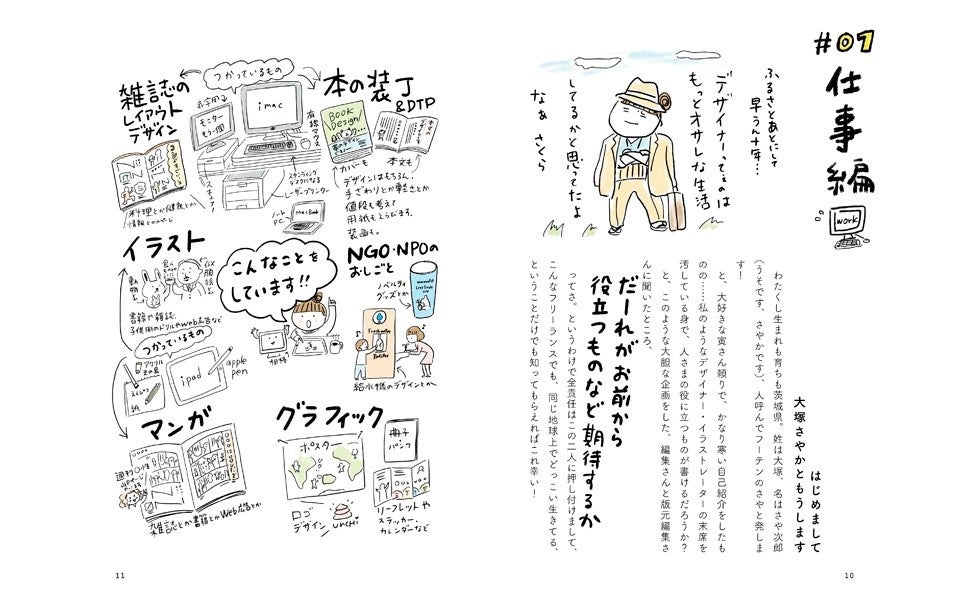 #01
仕事編
work
ふるさとあとにして
早うん十年…
デザイナーってぇのは
もっとオサレな生活
してるかと思ってたよ
なぁ さくら
はじめまして
大塚さやかともうします
わたくし生まれも育ちも茨城県。姓は大塚、名はさや次郎
(うそです、さやかです)、人呼んでフーテンのさやと発しま
す!
と、大好きな寅さん頼りで、かなり寒い自己紹介をしたも
のの……私のようなデザイナー・イラストレーターの末席を
汚している身で、人さまの役に立つものが書けるだろうか?
と、このような大胆な企画をした、編集さんと版元編集さ
んに聞いたところ、
だーれがお前から
役立つものなど期待するか
ってさ。というわけで全責任はこの二人に押し付けまして、
こんなフリーランスでも、同じ地球上でどっこい生きてる、
ということだけでも知ってもらえればこれ幸い!
10
雑誌の
レイアウト
デザイン
つかっているもの
モニター
もう1個
imac
有線マウス
スキャナー
レーザープリンター
ノート
PC
macBook
料理とか健康とか
情報とかのページ
本の装丁
&DTP
BOOK
Design
本文も
カバーも
デザインはもちろん、
手ざわりとか重さとか
値段も考えて
用紙もえらびます。
装画も。
イラスト
動物と
食べもの
似顔絵
書籍や雑誌、
子供用のドリルやWeb広告など
こんなことを
しています!!
相棒
NGO・NPOの
おしごと
ノベルティ
グッズとか
給水機のデザインとか
つかっているもの
アクリル
えんぴつ
紙
ipad
apple
pen
マンガ
雑誌とか書籍とかWeb広告とか
グラフィック
ポスター
冊子
パンフ
ロゴ
デザイン
UNCHi
リーフレットや
ステッカー、
カレンダーなど
11